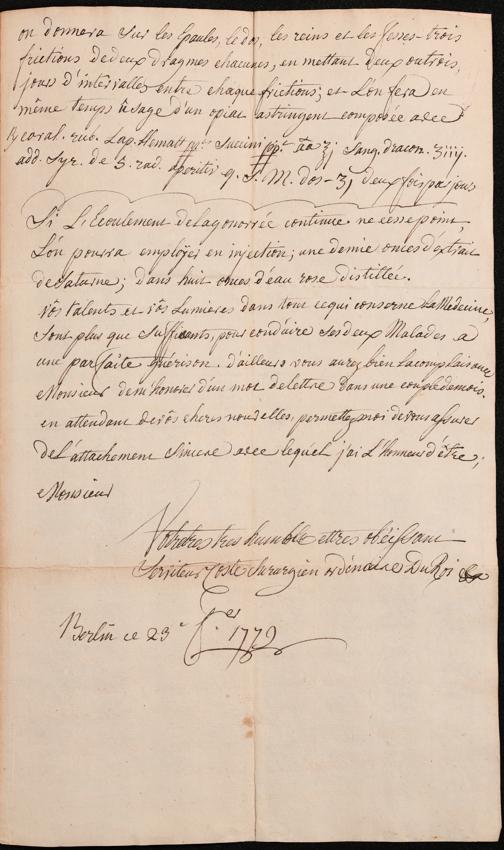 on donnera sur les épaules, le dos, les reins et les fesses trois
frictions de deux dragmes chacunes, en mettant deux ou trois,
jours d'intervalles entre chaque frictions; et L'on fera en
même temps usage d'un opiat astringent composée avec
coral. rub. Lap. Hemat. ppt. Succini ppt. āā ʒj Sang. dracon.
add. Syr. de 5. rad. aperitiv q. S. M. dos - ʒj deux fois par jour
Si L'Ecoulement de la gonorrée continue ne cesse point,
L'on pourra employer en injection; une demie onces d'extrait
de Saturne; dans huit onces d'eau rose distillée.
vôs talents et vôs Lumieres dans tout ce qui conserne La Medecine,
Sont plus que Suffisants, pour conduire Ses deux Malades a
une parfaite guérison. d'ailleurs vous aurez bien la complaisance
Monsieur de m'honorer d'un mot de lettre dans une couple de mois.
en attendant de vôs cheres nouvelles, permettez moi de vous assurer
de L'attachement Sincere avec lequel j'ai L'Honneur d'être;
Monsieur
Votre tres tres humble et tres obéissant
Serviteur Coste Sururgien ordénaire Du Roi
Berlin ce 23e 1779